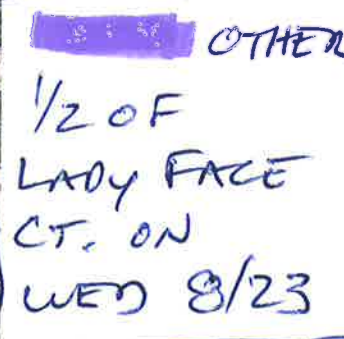 OTHER
1/2 OF
LADY FACE
CT. ON
WED 8/23